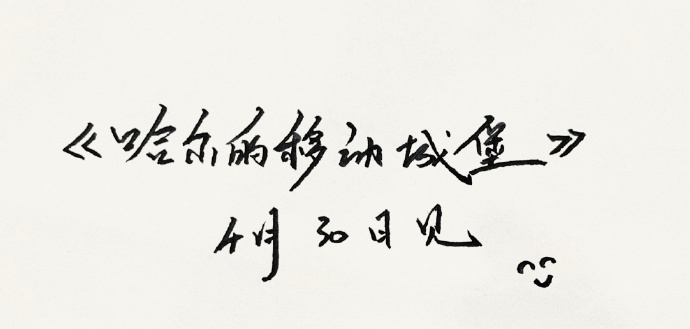 《哈尔的移动城堡》
4月30日见